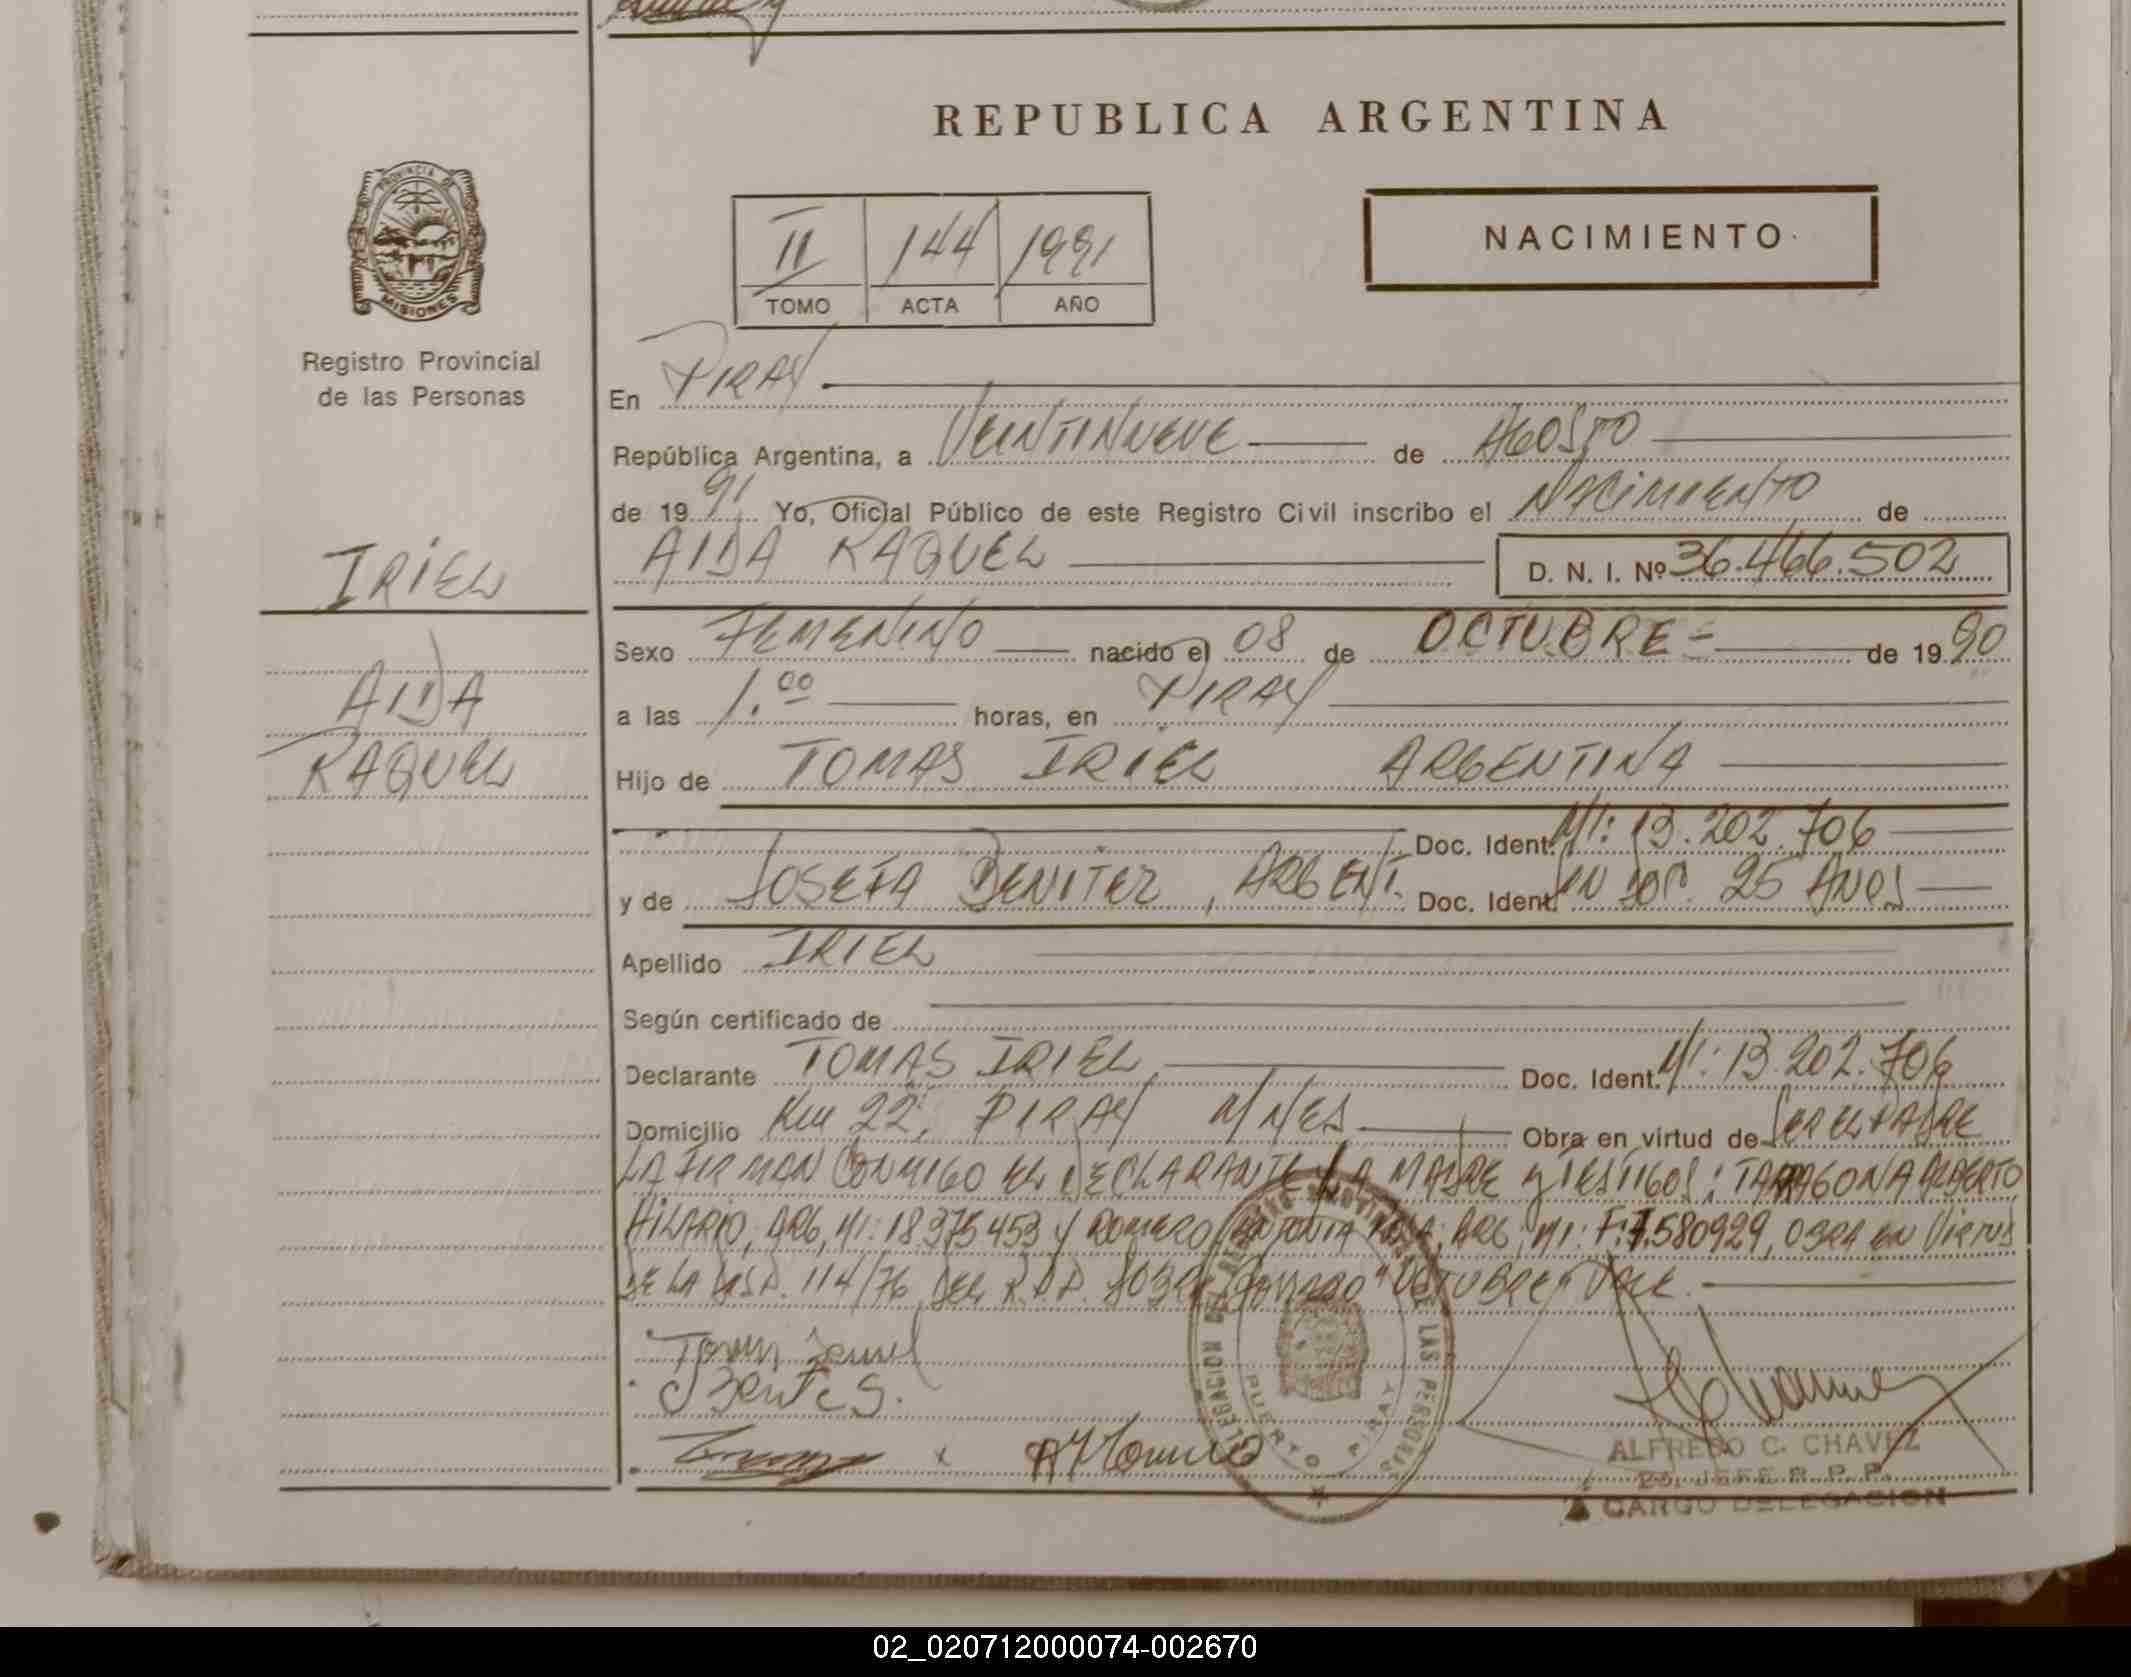 REPUBLICA ARGENTINA
PROVINCIA DE
MISIONES
Registro Provincial
de las Personas
II 144 1991
TOMO ACTA AÑO
NACIMIENTO
En PIRAY
República Argentina, a VEINTINUEVE de AGOSTO
de 1991 Yo, Oficial Público de este Registro Civil inscribo el NACIMIENTO de
AIDA RAQUEL D. N. I. Nº 36.466.502
IRIEL
AIDA
RAQUEL
Sexo FEMENINO nacido el 08 de OCTUBRE - de 1990
a las 1.00 horas, en PIRAY
Hijo de TOMAS IRIEL ARGENTINA
Doc. Ident. MI: 13.202.706
y de JOSEFA BENITEZ, ARGENT. Doc. Ident. 25 AÑOS
Apellido IRIEL
Según certificado de
Declarante TOMAS IRIEL Doc. Ident. MI: 13.202.706
Domicilio Km 22, PIRAY MNES Obra en virtud de SER EL PADRE
LA FIRMAN CONMIGO EL DECLARANTE, LA MADRE y TESTIGOS: TARRAGONA ALBERTO
HILARIO, ARG, MI: 18.375.453 y ROMERO ANTONIA ROSA, ARG, MI: F:7.580929, OBRA en Virtud
DE LA DISP. 114/76 DEL R.P.P. SOBRE "OCTUBRE" VALE.
DELEGACION LAS PERSONAS
PUERTO PIRAY
ALFREDO C. CHAVEZ
JEFE R. P. P.
A CARGO DELEGACION
02_020712000074-002670